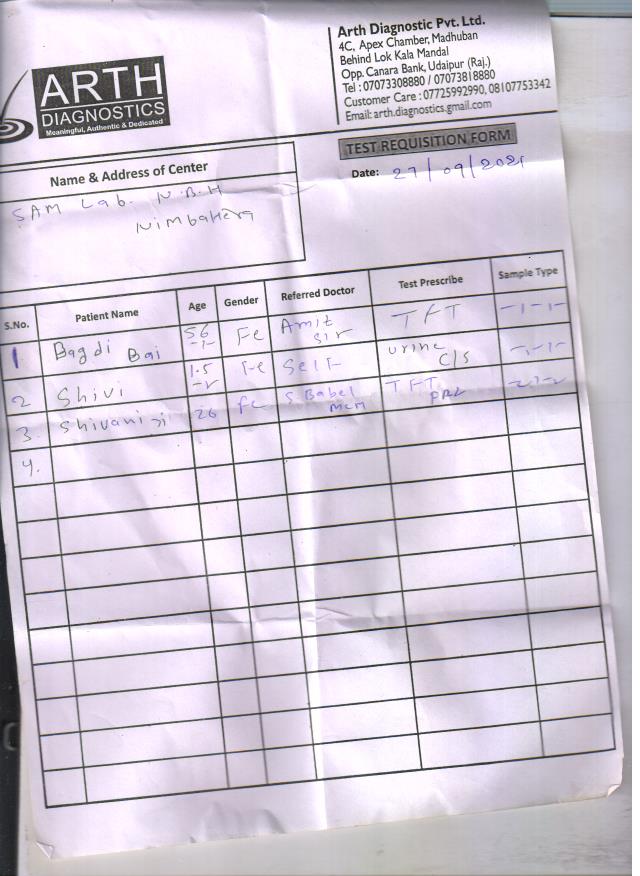 ARTH
DIAGNOSTICS
Meaningful, Authentic & Dedicated
Arth Diagnostic Pvt. Ltd.
4C, Apex Chamber, Madhuban
Behind Lok Kala Mandal
Opp. Canara Bank, Udaipur (Raj.)
Tel : 07073308880 / 07073818880
Customer Care : 07725992990, 08107753342
Email: arth.diagnostics.gmail.com
TEST REQUISITION FORM
Date: 27/09/2021
Name & Address of Center
SAM Lab. N.B.H
Nimbahera
S.No. Patient Name Age Gender Referred Doctor Test Prescribe Sample Type
1 Bagdi Bai 56 Fe Amit Sir TFT
2 Shivi 1.5 Fe Self Urine C/S
3. Shivani ji 26 Fe S. Babel mem TFT PRL
4.